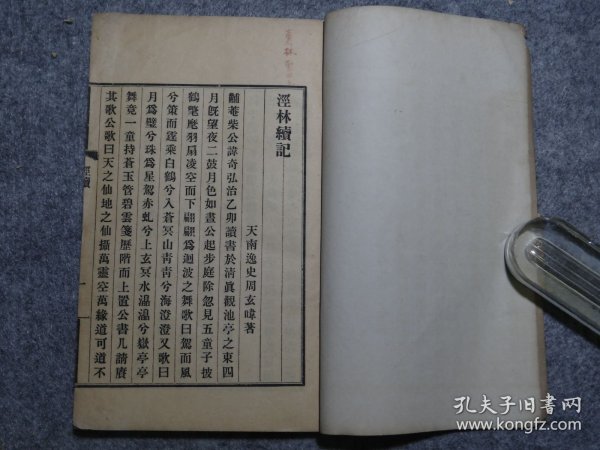 涇林續記
天南逸史周玄暐著
黼菴柴公諱奇弘治乙卯讀書於清眞觀池亭之東四
月旣望夜二鼓月色如晝公起步庭除忽見五童子披
鶴氅麾羽扇凌空而下翩翩爲迴波之舞歌曰駕而風
兮策而霆乘白鶴兮入蒼冥山靑靑兮海澄澄又歌曰
月爲璧兮珠爲星駕赤虬兮上玄冥水溫溫兮嶽亭亭
舞竟一童持蒼玉管碧雲箋歷階而上置公書几請賡
其歌公歌曰天之仙地之仙攝萬靈空萬緣道可道不
孔夫子旧書网
KONGFZ.COM